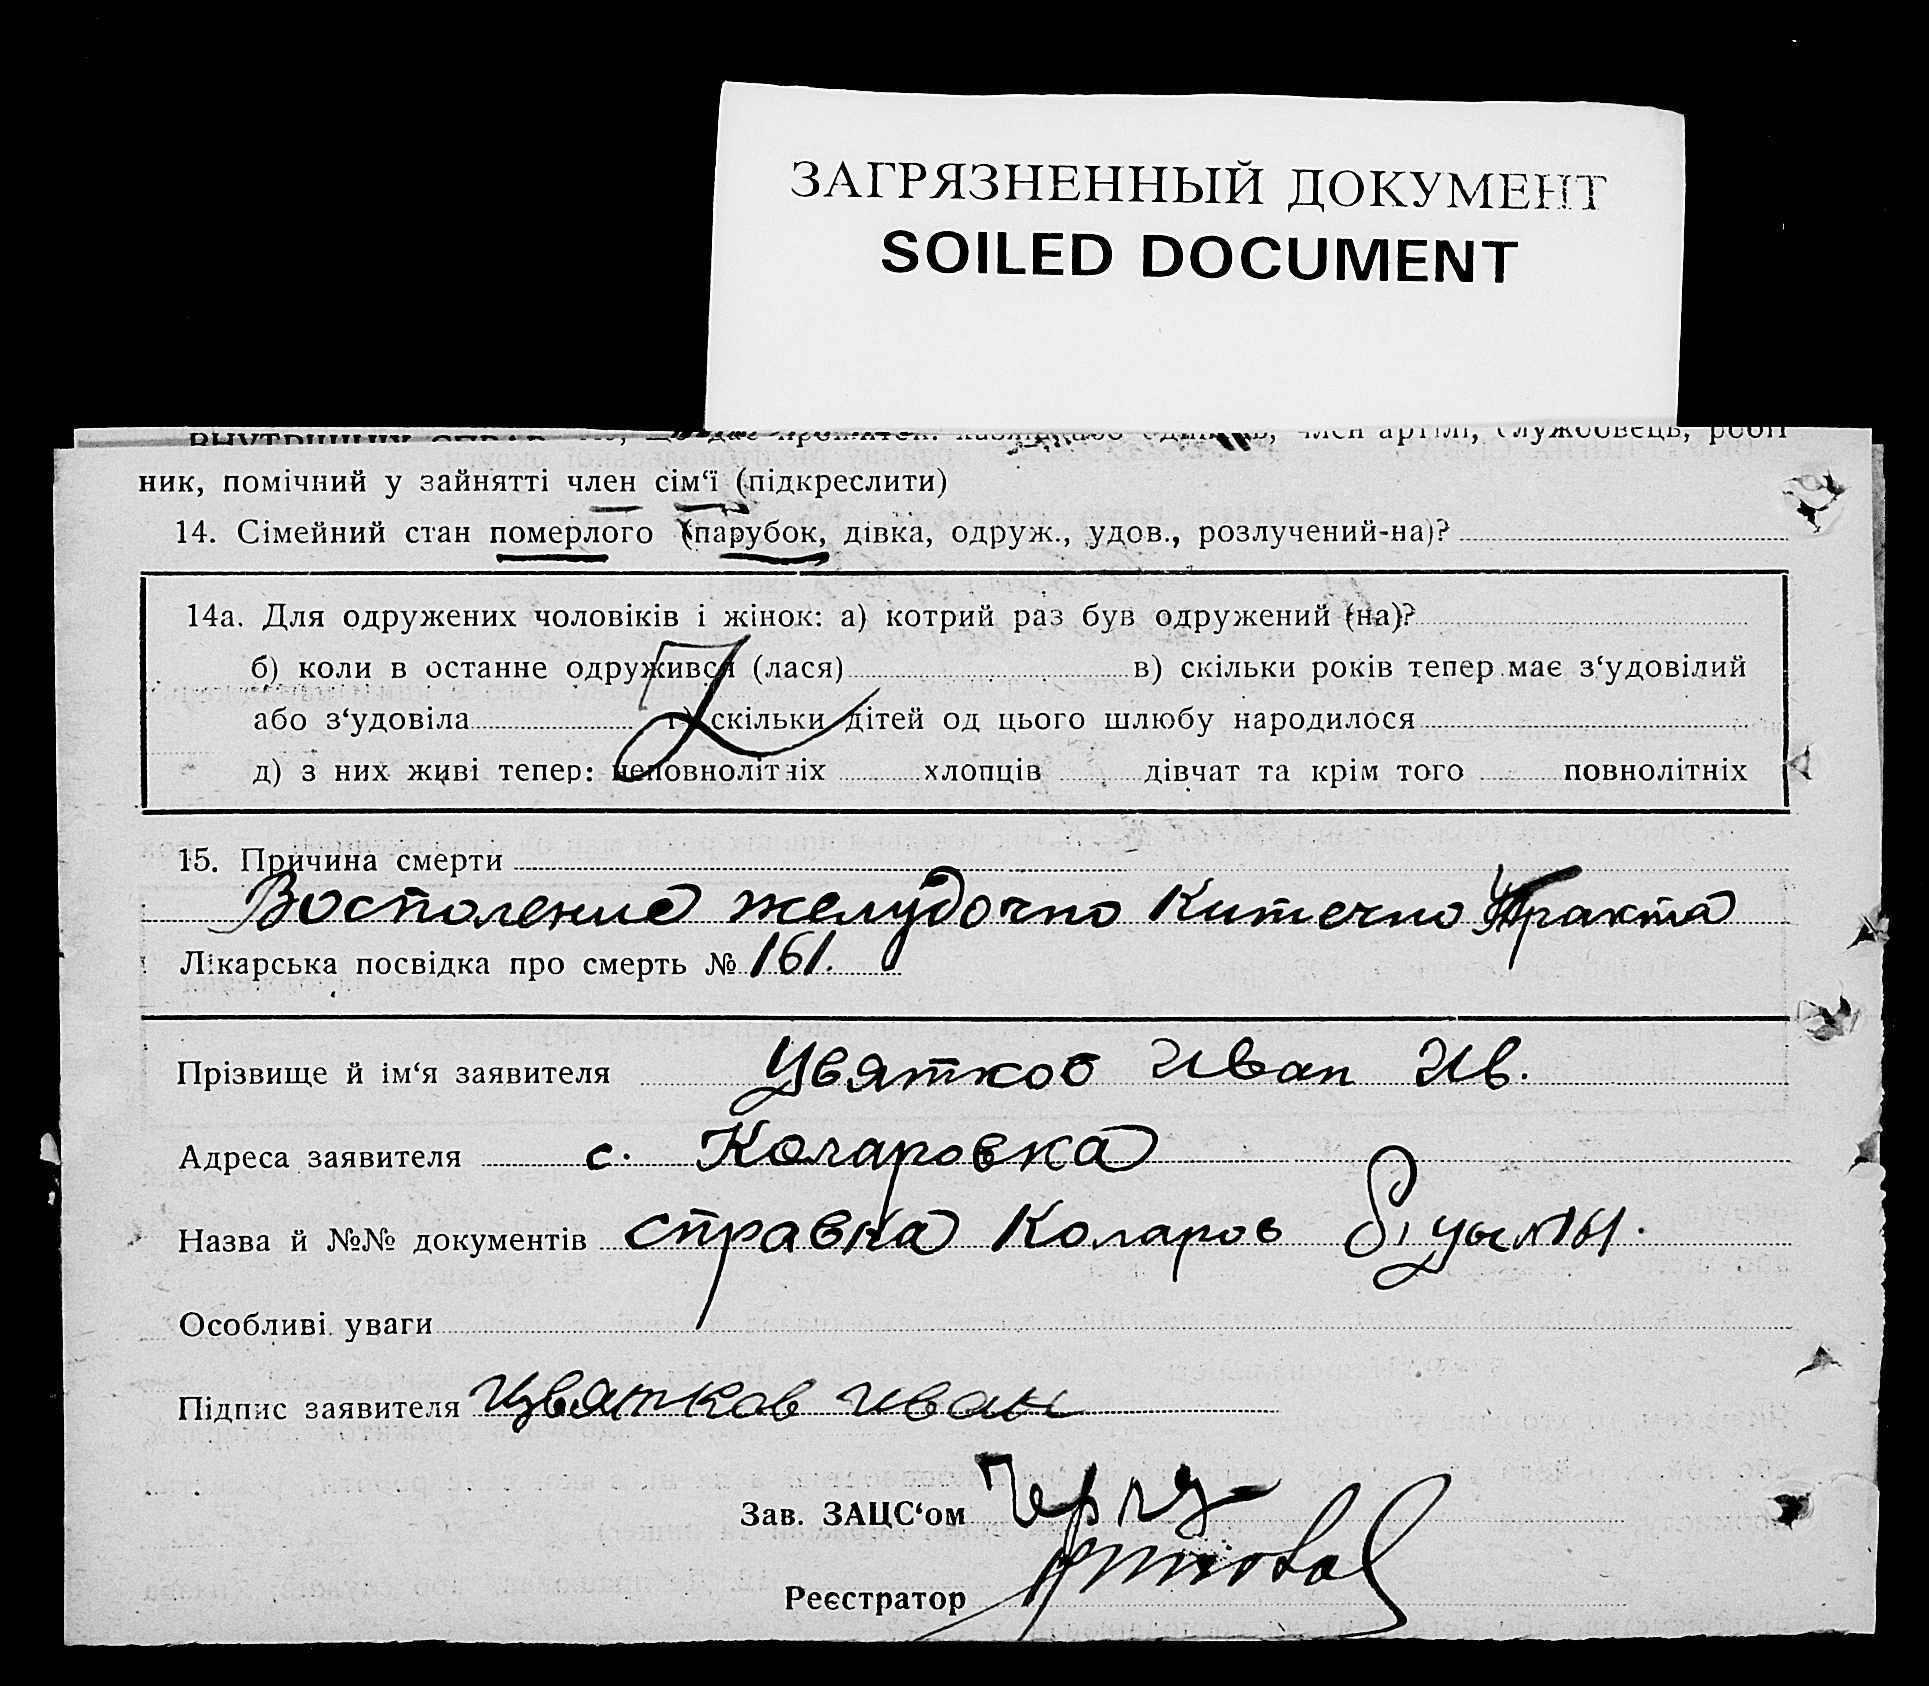 ЗАГРЯЗНЕННЫЙ ДОКУМЕНТ
SOILED DOCUMENT
член артілі, службовець, робіт
ник, помічний у зайнятті член сім‘ї (підкреслити)
14. Сімейний стан померлого (парубок, дівка, одруж., удов., розлучений-на)?
14а. Для одружених чоловіків і жінок: а) котрий раз був одружений (на)?
б) коли в останне одружився (лася) в) скільки років тепер має з‘удовілий
або з‘удовіла г) скільки дітей од цього шлюбу народилося
д) з них живі тепер: неповнолітніх хлопців дівчат та крім того повнолітніх
15. Причина смерти
Восполение желудочно Китечно Тракта
Лікарська посвідка про смерть № 161.
Прізвище й ім‘я заявителя Цвятков Иван Ив.
Адреса заявителя с. Коларовка
Назва й №№ документів справка Коларов 161.
Особливі уваги
Підпис заявителя Цвятков Иван
Зав. ЗАЦС‘ом
Реєстратор